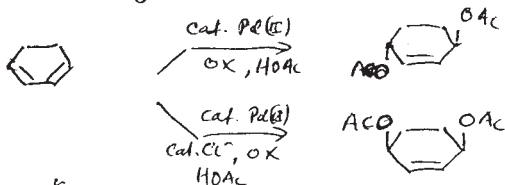 cat. Pd(II)
OX, HOAc
OAc
AcO
cat. Pd(II)
cat. Cl⁻, OX
HOAc
AcO OAc